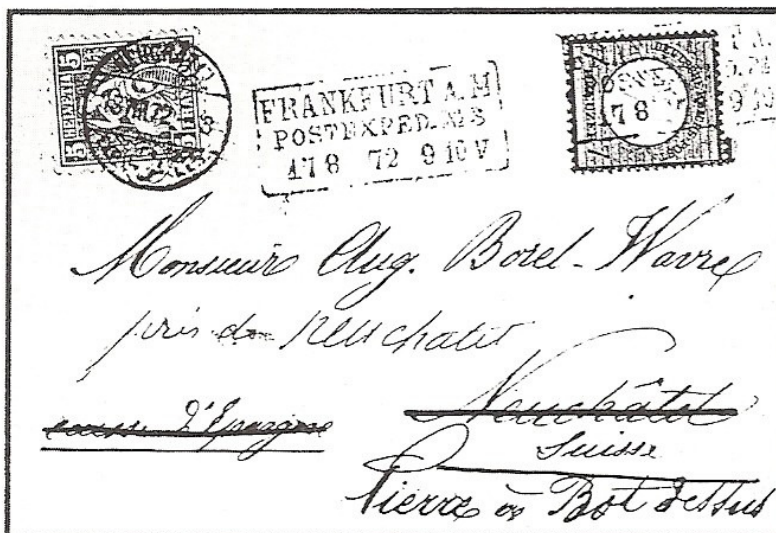 FRANKFURT A.M
POSTEXPED. № 3
17 8 72 9 10 V
17 8
Monsieur Aug. Borel-Wavre
près de Neuchatel
caisse d'Epargne
Neuchâtel
Suisse
Pierre à Bot dessus